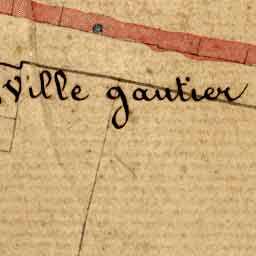 Ville gautier